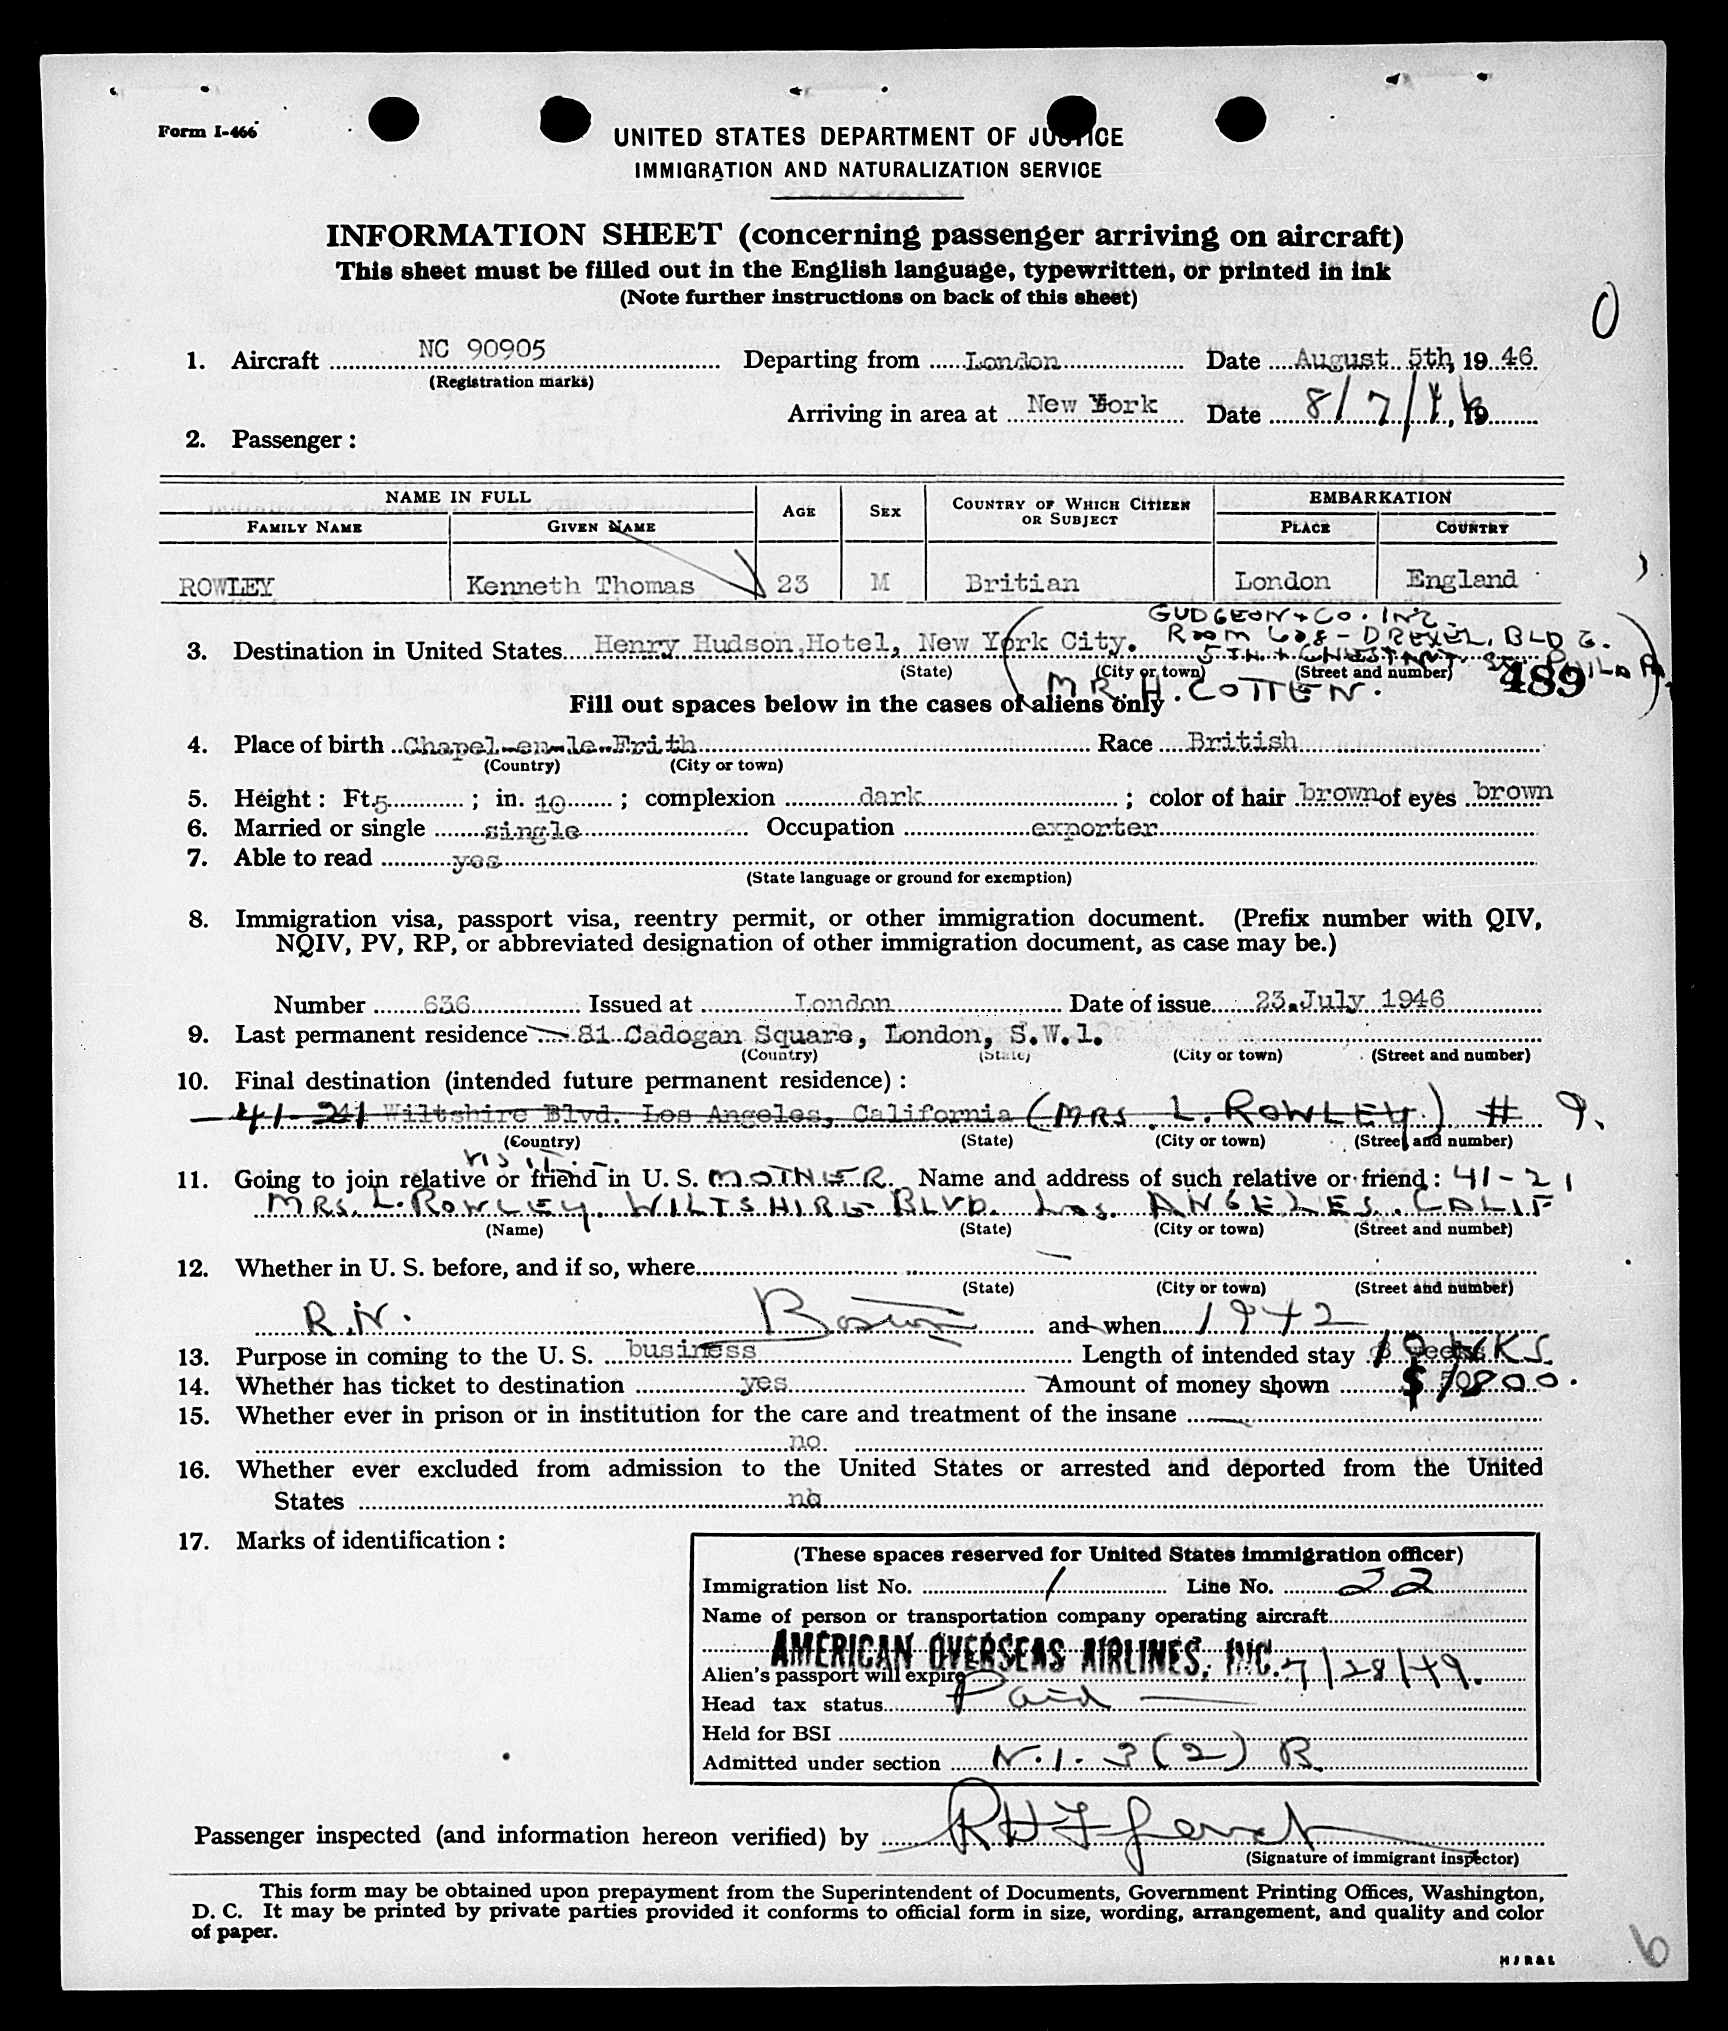 Form I-466
UNITED STATES DEPARTMENT OF JUSTICE
IMMIGRATION AND NATURALIZATION SERVICE
INFORMATION SHEET (concerning passenger arriving on aircraft)
This sheet must be filled out in the English language, typewritten, or printed in ink
(Note further instructions on back of this sheet)
0
1. Aircraft NC 90905 Departing from London Date August 5th, 19 46
(Registration marks)
Arriving in area at New York Date 8/7/46, 19
2. Passenger :
NAME IN FULL AGE SEX COUNTRY OF WHICH CITIZEN OR SUBJECT EMBARKATION
FAMILY NAME GIVEN NAME PLACE COUNTRY
ROWLEY Kenneth Thomas 23 M Britian London England
GUDGEON + CO. INC.
3. Destination in United States Henry Hudson Hotel, New York City. ROOM 608 - DREXEL BLDG.
5TH + CHESTNUT ST. PHILA PA.
(State) (City or town) (Street and number) 489
MR. H. COTTEN.
Fill out spaces below in the cases of aliens only
4. Place of birth Chapel-en-le-Frith Race British
(Country) (City or town)
5. Height : Ft. 5 ; in. 10 ; complexion dark ; color of hair brown of eyes brown
6. Married or single single Occupation exporter
7. Able to read yes
(State language or ground for exemption)
8. Immigration visa, passport visa, reentry permit, or other immigration document. (Prefix number with QIV,
NQIV, PV, RP, or abbreviated designation of other immigration document, as case may be.)
Number 636 Issued at London Date of issue 23.July 1946
9. Last permanent residence 81 Cadogan Square, London, S.W.1.
(Country) (State) (City or town) (Street and number)
10. Final destination (intended future permanent residence) :
41-21 Wiltshire Blvd. Los Angeles, California (MRS. L. ROWLEY) # 9.
(Country) (State) (City or town) (Street and number)
VISIT
11. Going to join relative or friend in U. S. MOTHER. Name and address of such relative or friend : 41-21
MRS. L. ROWLEY. WILTSHIRE BLVD. Los. ANGELES. CALIF
(Name) (State) (City or town) (Street and number)
12. Whether in U. S. before, and if so, where
(State) (City or town) (Street and number)
R.N. Boston and when 1942
13. Purpose in coming to the U. S. business Length of intended stay 10 WKS.
14. Whether has ticket to destination yes Amount of money shown $
15. Whether ever in prison or in institution for the care and treatment of the insane
no
16. Whether ever excluded from admission to the United States or arrested and deported from the United
States no
17. Marks of identification :
(These spaces reserved for United States immigration officer)
Immigration list No. 1 Line No. 22
Name of person or transportation company operating aircraft
AMERICAN OVERSEAS AIRLINES, INC.
Alien's passport will expire 7/28/49.
Head tax status Paid
Held for BSI
Admitted under section N.I. 3(2) B
Passenger inspected (and information hereon verified) by
(Signature of immigrant inspector)
This form may be obtained upon prepayment from the Superintendent of Documents, Government Printing Offices, Washington,
D. C. It may be printed by private parties provided it conforms to official form in size, wording, arrangement, and quality and color
of paper.
6